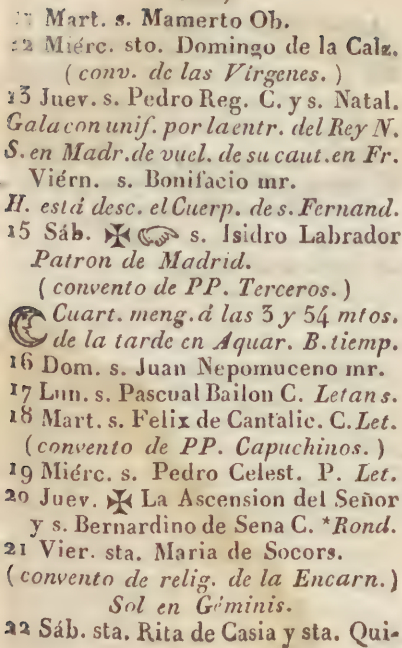 Mart. s. Mamerto Ob.
12 Miérc. sto. Domingo de la Calz.
(conv. de las Vírgenes.)
13 Juev. s. Pedro Reg. C. y s. Natal.
Gala con unif. por la entr. del Rey N.
S. en Madr. de vuel. de su caut. en Fr.
Viérn. s. Bonifacio mr.
H. está desc. el Cuerp. de s. Fernand.
15 Sáb. ✠ ☞ s. Isidro Labrador
Patron de Madrid.
(convento de PP. Terceros.)
Cuart. meng. á las 3 y 54 mtos.
de la tarde en Aquar. B. tiemp.
16 Dom. s. Juan Nepomuceno mr.
17 Lun. s. Pascual Bailon C. Letans.
18 Mart. s. Felix de Cantalic. C. Let.
(convento de PP. Capuchinos.)
19 Miérc. s. Pedro Celest. P. Let.
20 Juev. ✠ La Ascension del Señor
y s. Bernardino de Sena C. *Rond.
21 Vier. sta. Maria de Socors.
(convento de relig. de la Encarn.)
Sol en Géminis.
22 Sáb. sta. Rita de Casia y sta. Qui-